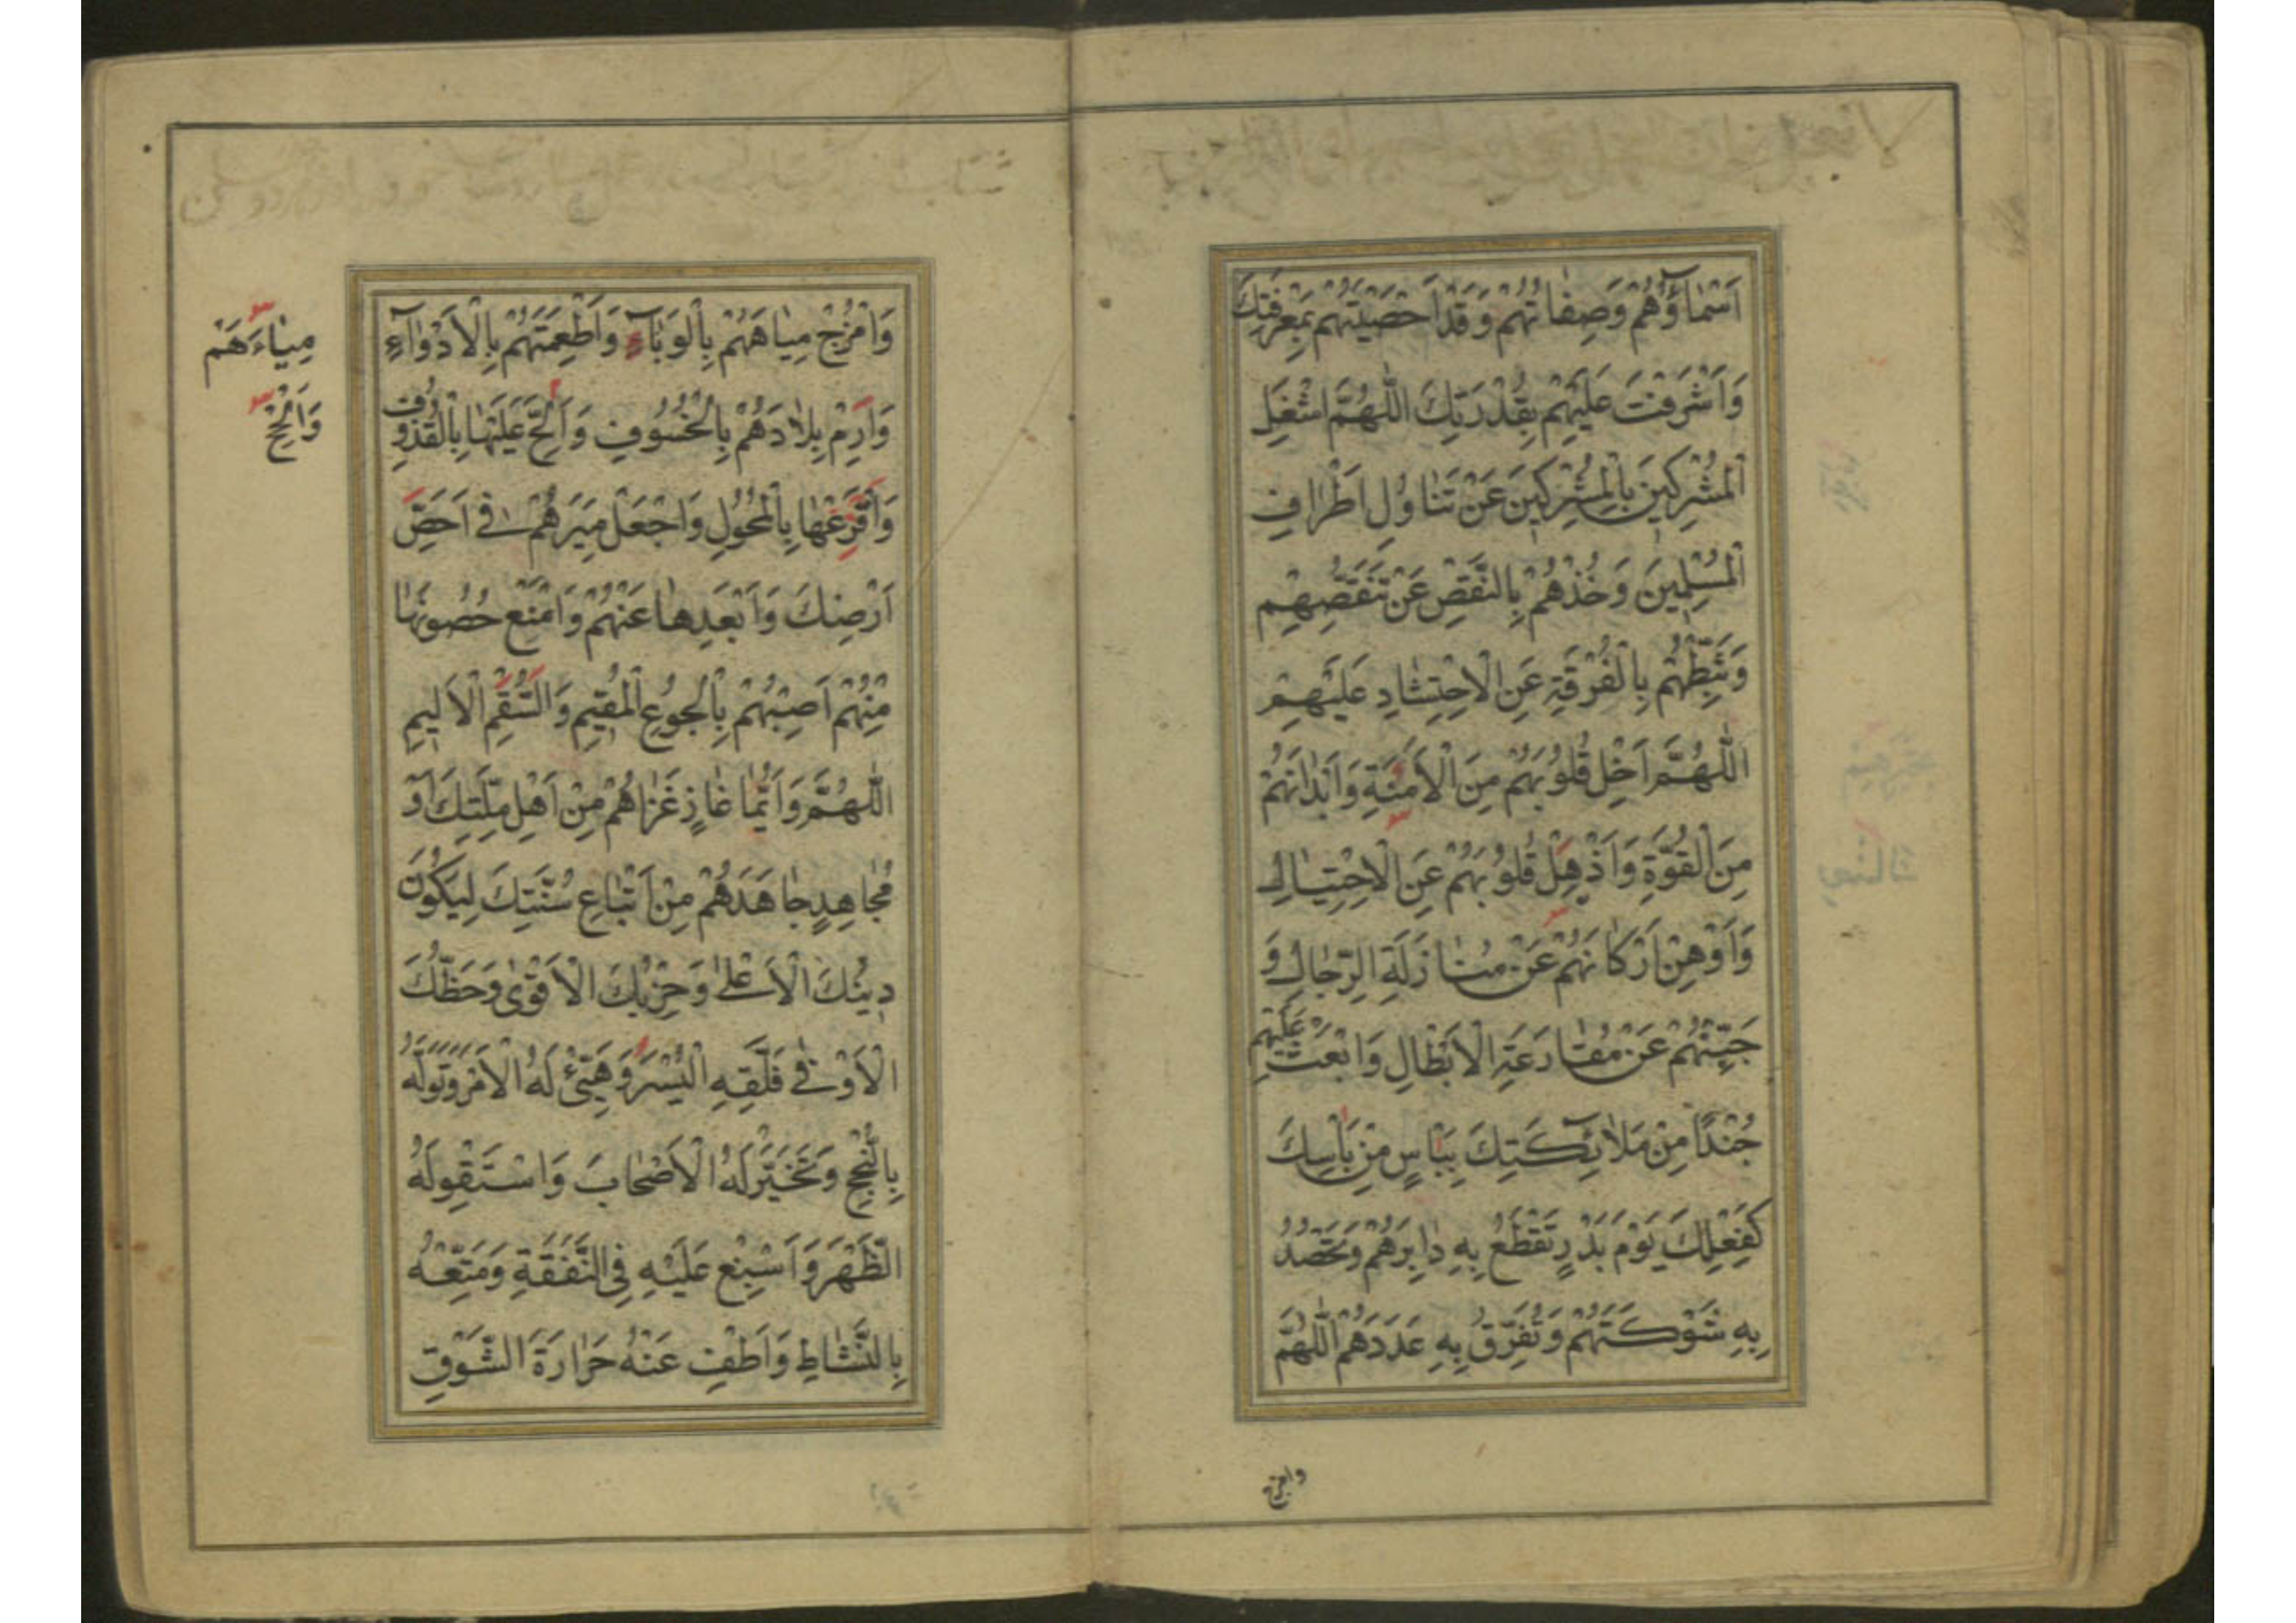 اَسْمٰاۤؤُهُمْ وَصِفٰاتُهُمْ وَقَدْ اَحْصَيْتَهُمْ بِمَعْرِفَتِكَ
وَاَشْرَفْتَ عَلَيْهِمْ بِقُدْرَتِكَ اَللّٰهُمَّ اشْغَلِ
الْمُشْرِكِينَ بِالْمُشْرِكِينَ عَنْ تَنٰاوُلِ اَطْرٰافِ
الْمُسْلِمِينَ وَخُذْهُمْ بِالنَّقْصِ عَنْ تَنَقُّصِهِمْ
وَثَبِّطْهُمْ بِالْفُرْقَةِ عَنِ الْاِحْتِشٰادِ عَلَيْهِمْ
اَللّٰهُمَّ اَخْلِ قُلُوبَهُمْ مِنَ الْاَمَنَةِ وَاَبْدٰانَهُمْ
مِنَ الْقُوَّةِ وَاَذْهِلْ قُلُوبَهُمْ عَنِ الْاِحْتِيٰالِ
وَاَوْهِنْ اَرْكٰانَهُمْ عَنْ مُنٰازَلَةِ الرِّجٰالِ وَ
جَبِّنْهُمْ عَنْ مُقٰارَعَةِ الْاَبْطٰالِ وَابْعَثْ عَلَيْهِمْ
جُنْدًا مِنْ مَلاٰئِكَتِكَ بِبَاْسٍ مِنْ بَاْسِكَ
كَفِعْلِكَ يَوْمَ بَدْرٍ تَقْطَعُ بِهِ دٰابِرَهُمْ وَتَحْصُدُ
بِهِ شَوْكَتَهُمْ وَتُفَرِّقُ بِهِ عَدَدَهُمْ اَللّٰهُمَّ
وامزج
وَامْزُجْ مِيٰاهَهُمْ بِالْوَبٰاۤءِ وَاَطْعِمَتَهُمْ بِالْاَدْوٰاۤءِ
وَارْمِ بِلاٰدَهُمْ بِالْخُسُوفِ وَاَلِحَّ عَلَيْهٰا بِالْقُذُوفِ
وَاَقْرِعْهٰا بِالْمُحُولِ وَاجْعَلْ مِيَرَهُمْ فِي اَحَصِّ
اَرْضِكَ وَاَبْعَدِهٰا عَنْهُمْ وَامْنَعْ حُصُونَهٰا
مِنْهُمْ اَصِبْهُمْ بِالْجُوعِ الْمُقِيمِ وَالسُّقْمِ الْاَلِيمِ
اَللّٰهُمَّ وَاَيُّمٰا غٰازٍ غَزٰاهُمْ مِنْ اَهْلِ مِلَّتِكَ اَوْ
مُجٰاهِدٍ جٰاهَدَهُمْ مِنْ اَتْبٰاعِ سُنَّتِكَ لِيَكُونَ
دِينُكَ الْاَعْلىٰ وَحِزْبُكَ الْاَقْوىٰ وَحَظُّكَ
الْاَوْفىٰ فَلَقِّهِ الْيُسْرَ وَهَيِّئْ لَهُ الْاَمْرَ وَتَوَلَّهُ
بِالنُّجْحِ وَتَخَيَّرْ لَهُ الْاَصْحٰابَ وَاسْتَقْوِ لَهُ
الظَّهْرَ وَاَسْبِغْ عَلَيْهِ فِي النَّفَقَةِ وَمَتِّعْهُ
بِالنَّشٰاطِ وَاَطْفِ عَنْهُ حَرٰارَةَ الشَّوْقِ
مِيٰاءَهُمْ
وَاَلْحِحْ